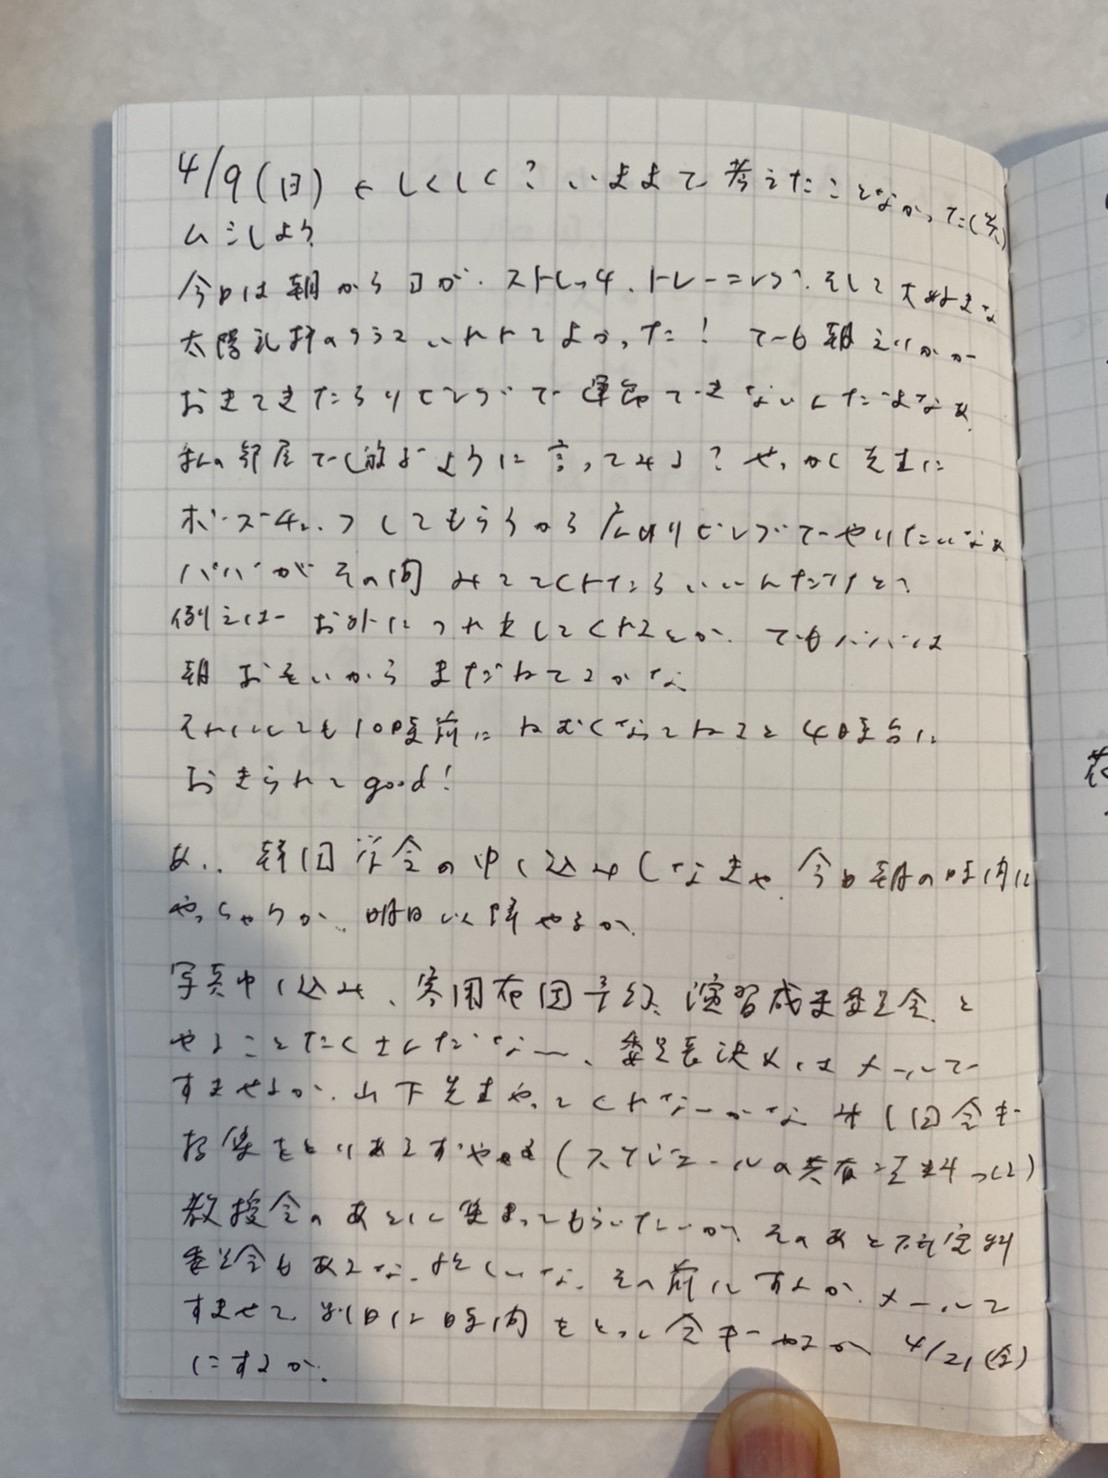 4/9(日) くしくしく? いままで考えたことなかった(笑)
ムシしよう
今日は朝からヨガ、ストレッチ、トレーニング、そして大好きな
太陽礼拝のクラスいれれてよかった! でも朝
おきてきたらリビングで運動できないんだよなあ
私の部屋で遊ぶように言ってみる? せっかく先生に
ポーズチェックしてもらうから広いリビングでやりたいなぁ
パパがその間みててくれたらいいんだけど、
例えばお外につれ出してくれるとか、でもパパは
朝おそいからまだねてるかな
それにしても10時前にねむくなってねると4時台に
おきられて good!
あ、韓国学会の申し込みしなきゃ、今日朝の時間に
やっちゃうか、明日以降やるか、
写真申し込み、 布団 、演習 委員会、と
やることたくさんだなー、委員長決めはメールで
すませるか、山下先生やってくれないかな 1回会を
招集をとりあえずや (スケジュールの共有 )
教授会のあとに集まってもらいたいが、そのあと
委員会もあるな、忙しいな、その前にするか、メールで
すませて、別日に時間をとって会 やるか 4/21(金)
にするか、